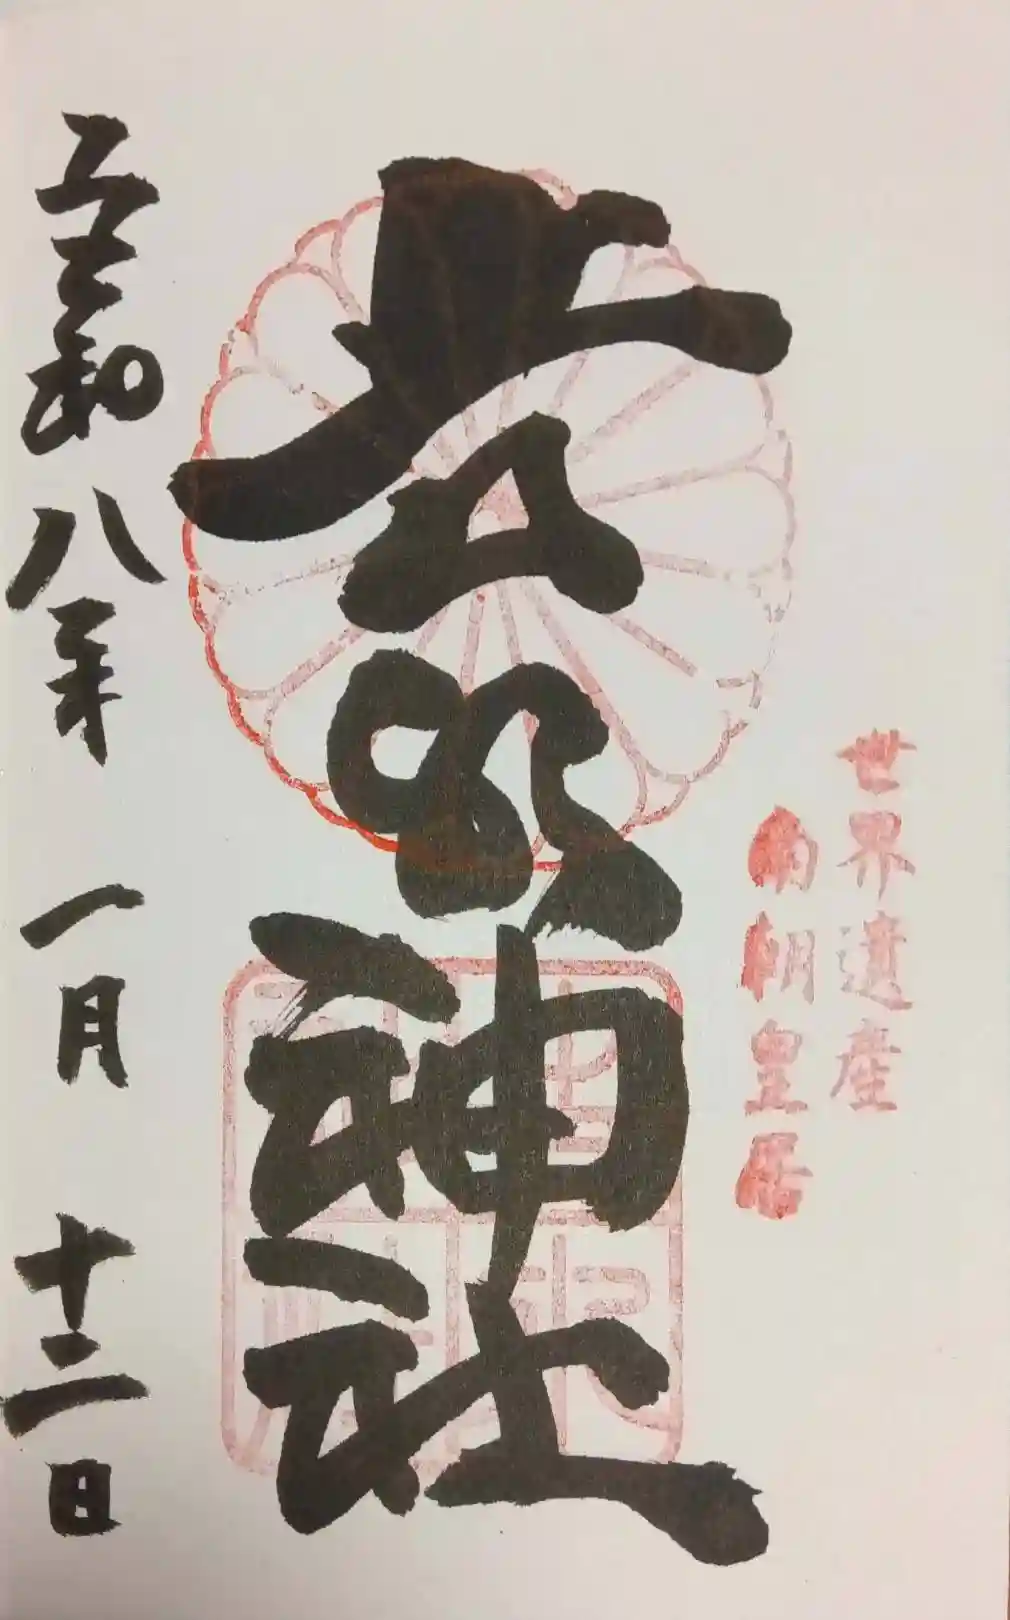 世界遺産
南朝皇居
吉水神社
令和八年 一月 十二日